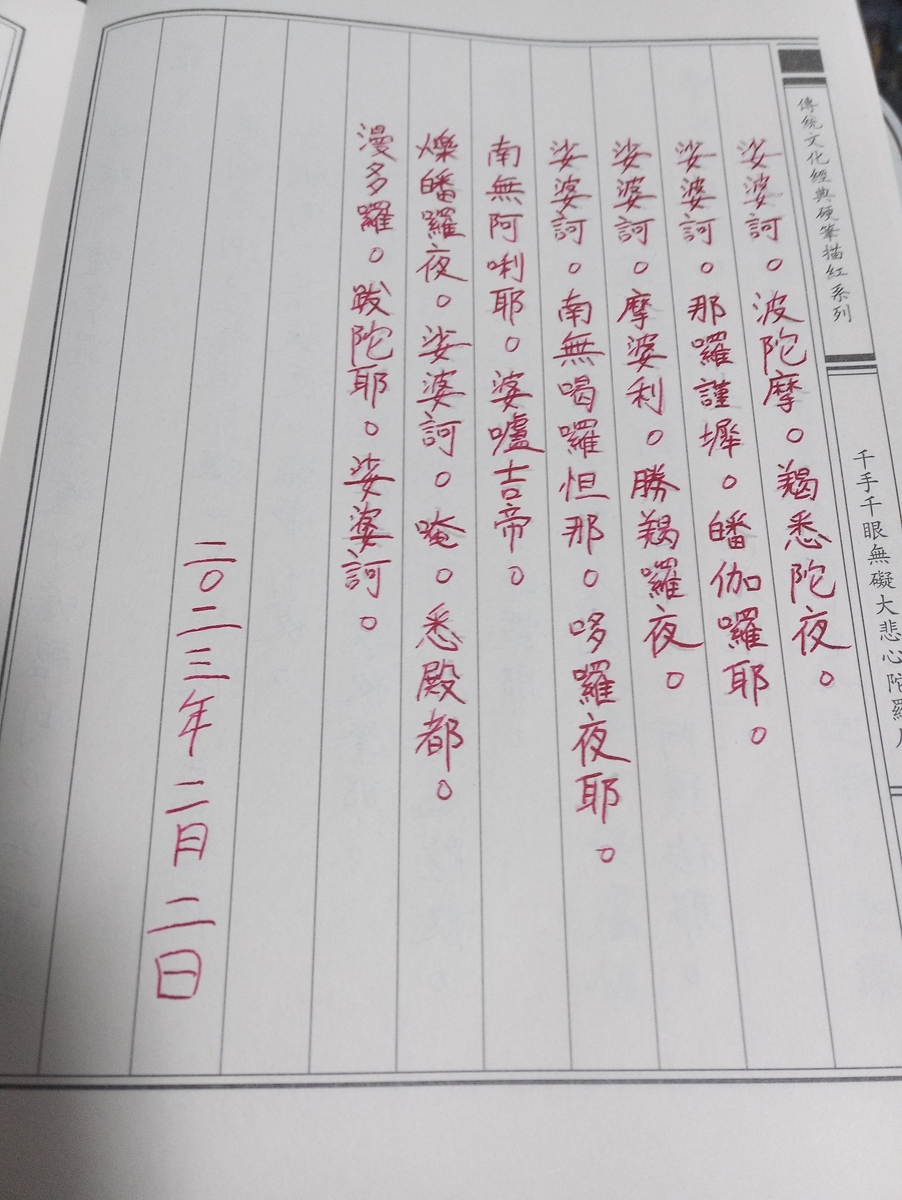 傳統文化經典硬筆描紅系列
千手千眼無礙大悲心陀羅
娑婆訶。波陀摩。羯悉陀夜。
娑婆訶。那囉謹墀。皤伽囉耶。
娑婆訶。摩婆利。勝羯囉夜。
娑婆訶。南無喝囉怛那。哆羅夜耶。
南無阿唎耶。婆嚧吉帝。
爍皤羅夜。娑婆訶。唵。悉殿都。
漫多羅。跋陀耶。娑婆訶。
二〇二三年二月二日